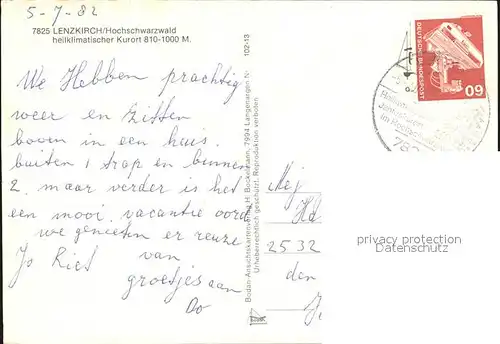 5-7-82
7825 LENZKIRCH/Hochschwarzwald
heilklimatischer Kurort 810-1000 M.
We Hebben prachtig
weer en Zitten
boven in een huis.
buiten 1 trap en binnen
2. maar verder is het
een mooi vacantie oord
we genieten er reuze
van
groetjes aan
Jo Riet
Do
102-13
Bodan-Ansichtskartenverlag H. Bockelmann, 7994 Langenargen Nr.
Urheberrechtlich geschützt. Reproduktion verboten
DEUTSCHE BUNDESPOST
60
782
2532
den
privacy protection
Datenschutz